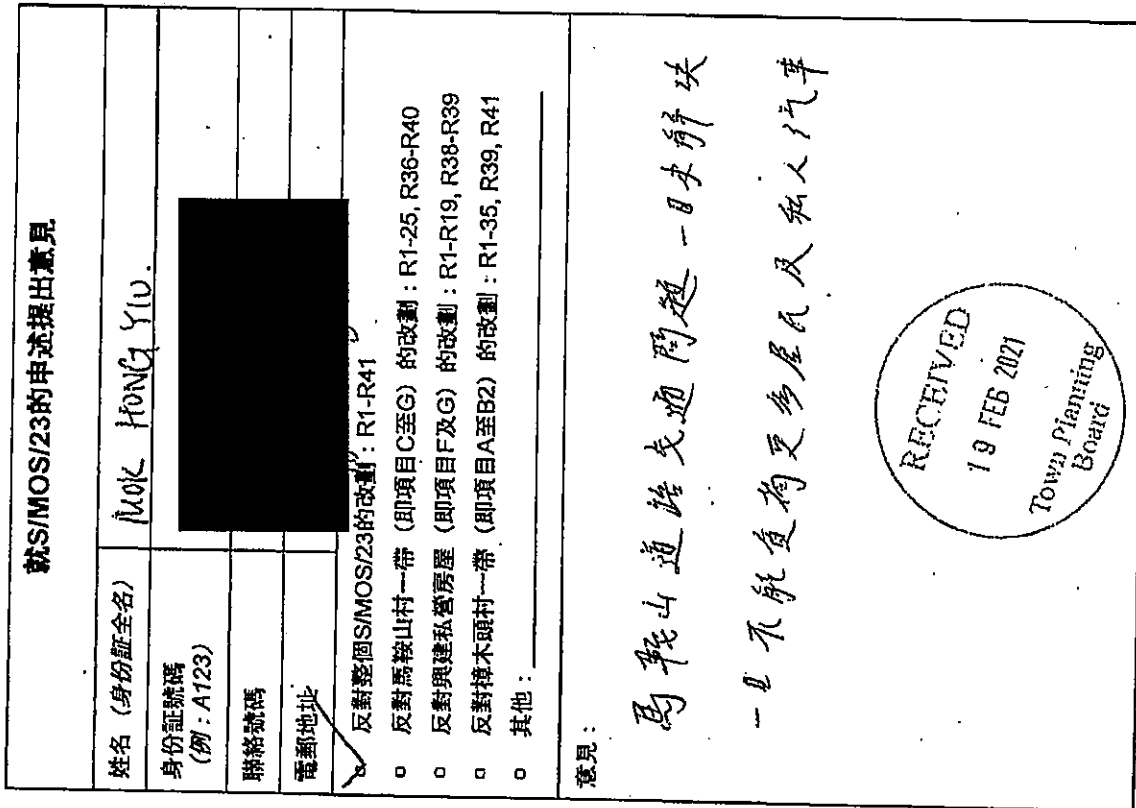 就S/MOS/23的申述提出意見
姓名（身份証全名） MOK HONG YIU.
身份証號碼
(例：A123)
聯絡號碼
電郵地址
反對整個S/MOS/23的改劃：R1-R41
反對馬鞍山村一帶（即項目C至G）的改劃：R1-25, R36-R40
反對興建私營房屋（即項目F及G）的改劃：R1-R19, R38-R39
反對樟木頭村一帶（即項目A至B2）的改劃：R1-35, R39, R41
其他：
意見：
馬鞍山道路交通問題一日未解决
一日不能負荷更多居民及私人汽車
RECEIVED
19 FEB 2021
Town Planning
Board